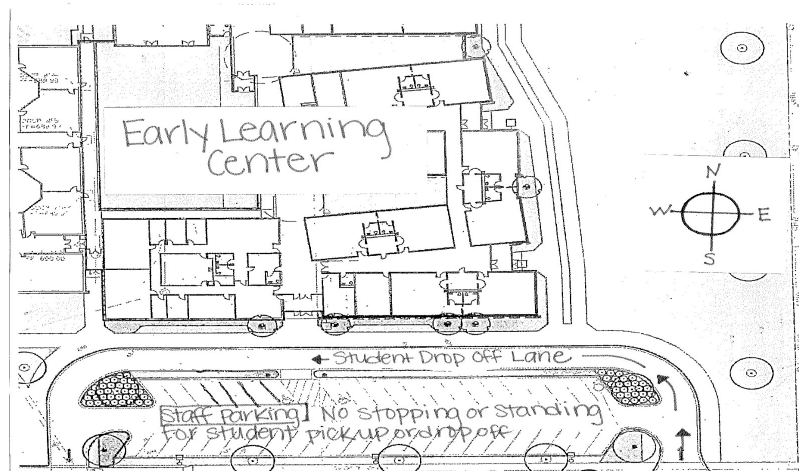 Early Learning
Center
N
W E
S
Student Drop Off Lane
Staff Parking No stopping or standing
for student pick up or drop off